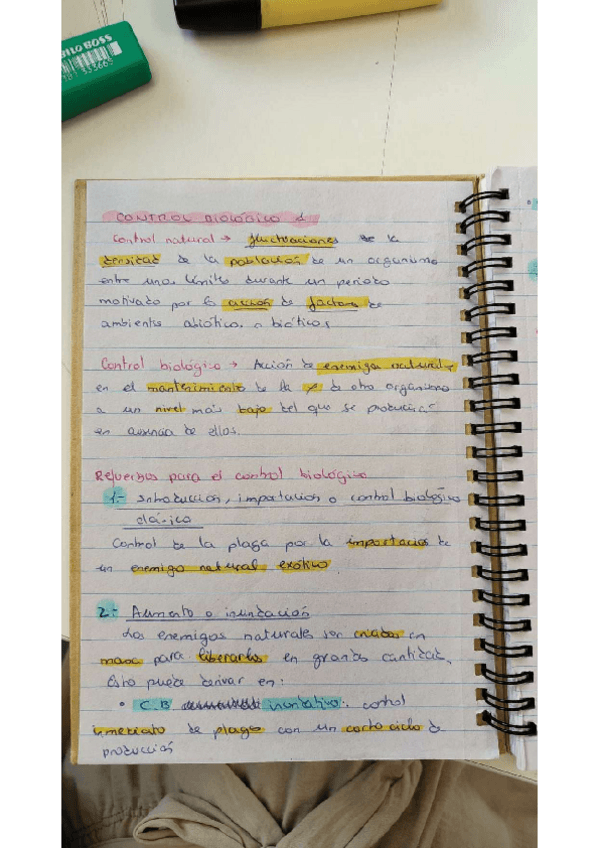 BILO BOSS
333665
CONTROL BIOLÓGICO 1
Control natural → fluctuaciones de la
densidad de la población de un organismo
entre unos límites durante un periodo
motivado por la acción de factores de
ambientes abióticos o bióticos
Control biológico → Acción de enemigos naturales
en el mantenimiento de la de otro organismo
a un nivel más bajo del que se produciría
en ausencia de ellos.
Refuerzos para el control biológico
1.- Introducción, importación o control biológico
clásico
Control de la plaga por la importación de
un enemigo natural exótico
2.- Aumento o inundación
Los enemigos naturales son criados en
masa para liberarlos en grandes cantidad.
Esto puede derivar en:
• C.B inundativo: control
inmediato de plagas con un corto ciclo de
producción